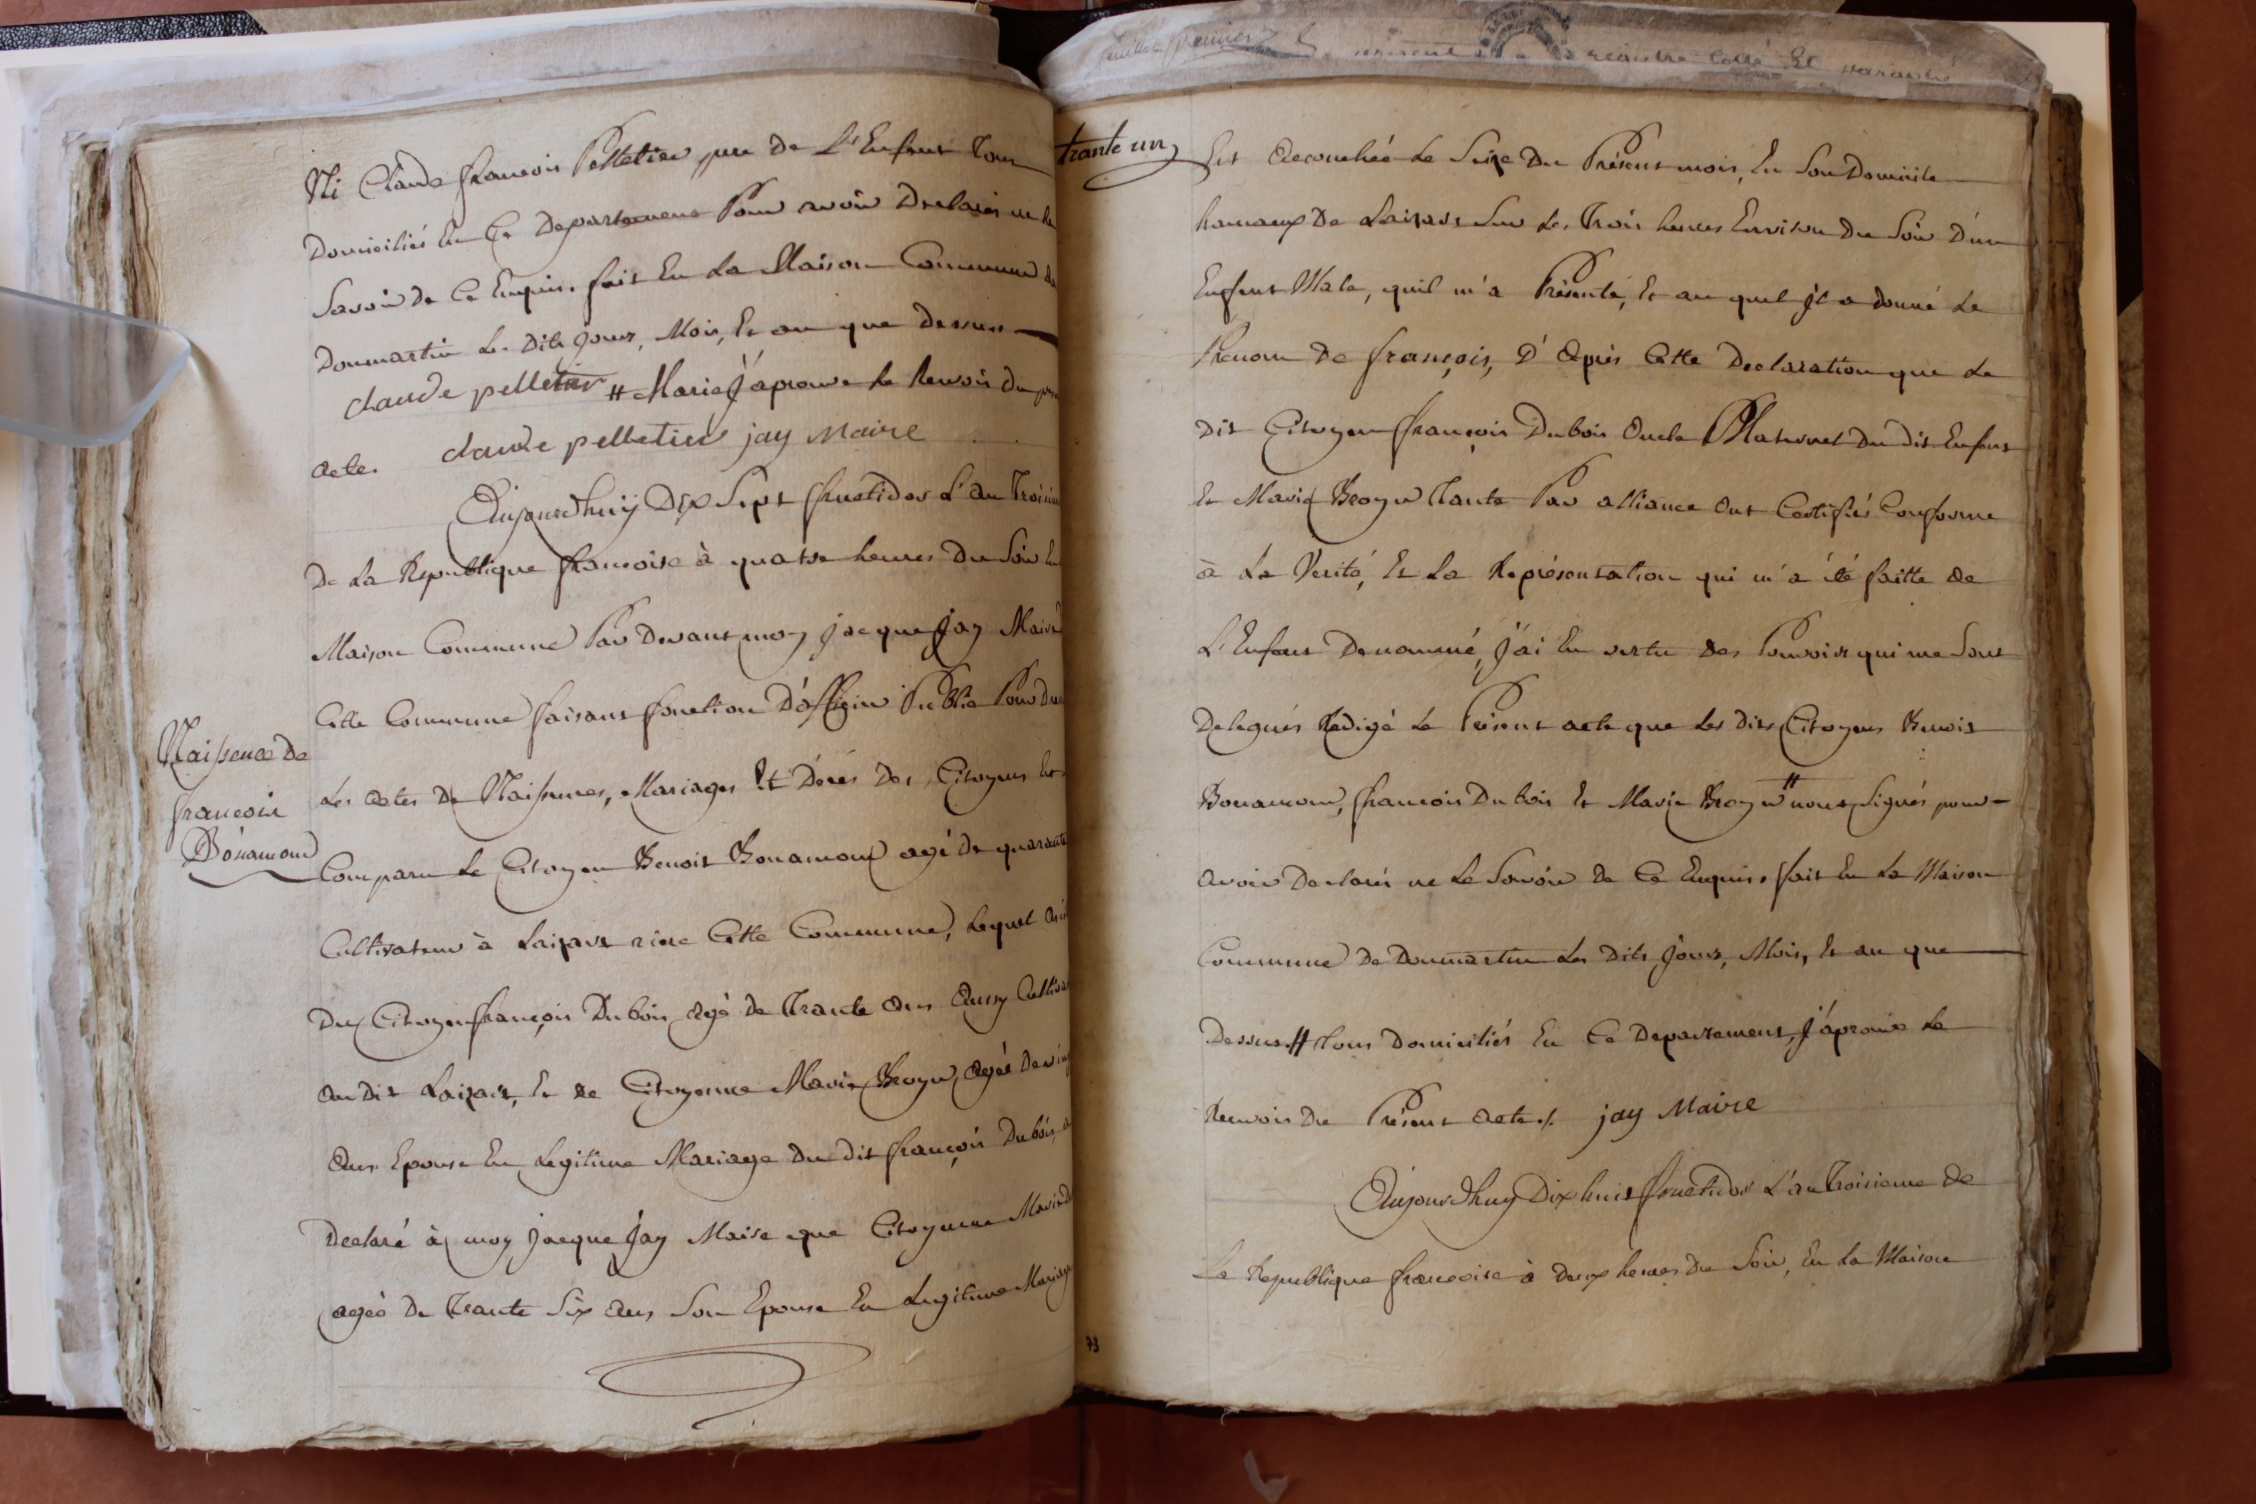 Ni Claude francois Pelletier pere de L'Enfent Tous
Domiciliés En Ce Departement Pour avoir Declarés ne le
Savoir de Ce Enquis. fait En La Maison Commune de
Dommartin Les Dits Jours, Mois, Et an que Dessus
claude pelletier # Marie J'aprouve Le Renvois du
claude pelletier jay Maire
acte.
Aujourdhuij Dix Sept fructidor L'an Troisieme
De La Republique francoise à quatre heures Du Soir En
Maison Commune Par Devant moy jacque Jay Maire
Cette Commune faisant fonction D'officier Public Pour
Les actes De Naissences, Mariages Et Décés Des Citoyens Est
Naissence De
francois
Bonamour
Comparu Le Citoyen Benoit Bonamour agé de quarante
Cultivateur à Laizant riere Cette Commune, Lequel
Du Citoyen françois Dubois agé de Trante Ans Aussy
Au Dit Laizant, Et de Citoyenne Marie Broyer, agée De
Ans Epouse En Legitime Mariage Du dit françois Dubois, a
Declaré à moy Jacque Jay Maire que Citoyenne Marie
agée De Trante Six ans Son Epouse En Legitime Mariage
trante un
Est Accouchée Le Seize Du Présent mois, En Son Domicile
hameaux De Laizant Sur Les Trois heures Environ Du Soir D'un
Enfent Male, quil m'a Présenté, Et au quel Jl a donné Le
Prenom De françois, D'Aprés Cette Declaration que Le
Dit Citoyen françois Dubois Oncle Maternel Du Dit Enfent
Et Marie Broyer Tante Par alliance Ont Certifiés Conforme
à La Verité, Et La Représentation qui m'a été faitte de
L'Enfent Denommé, J'ai En vertu des Pouvoirs qui me Sont
Delegués Redigé Le Présent acte que Les Dits Citoyens Benoit
Bonamour, francois Dubois Et Marie Broyer # nont Signés pour
Avoir Declarés ne Le Savoir de Ce Enquis. fait En La Maison
Commune De Dommartin Les Dits Jours, Mois, Et an que
Dessus. # Tous Domiciliés En Ce Departement, J'aprouve Le
Renvois Du Présent Acte. jay Maire
Aujourdhuy Dix huit fructidor L'an Troisieme de
La Republique francoise à Deux heures Du Soir, En La Maison
73